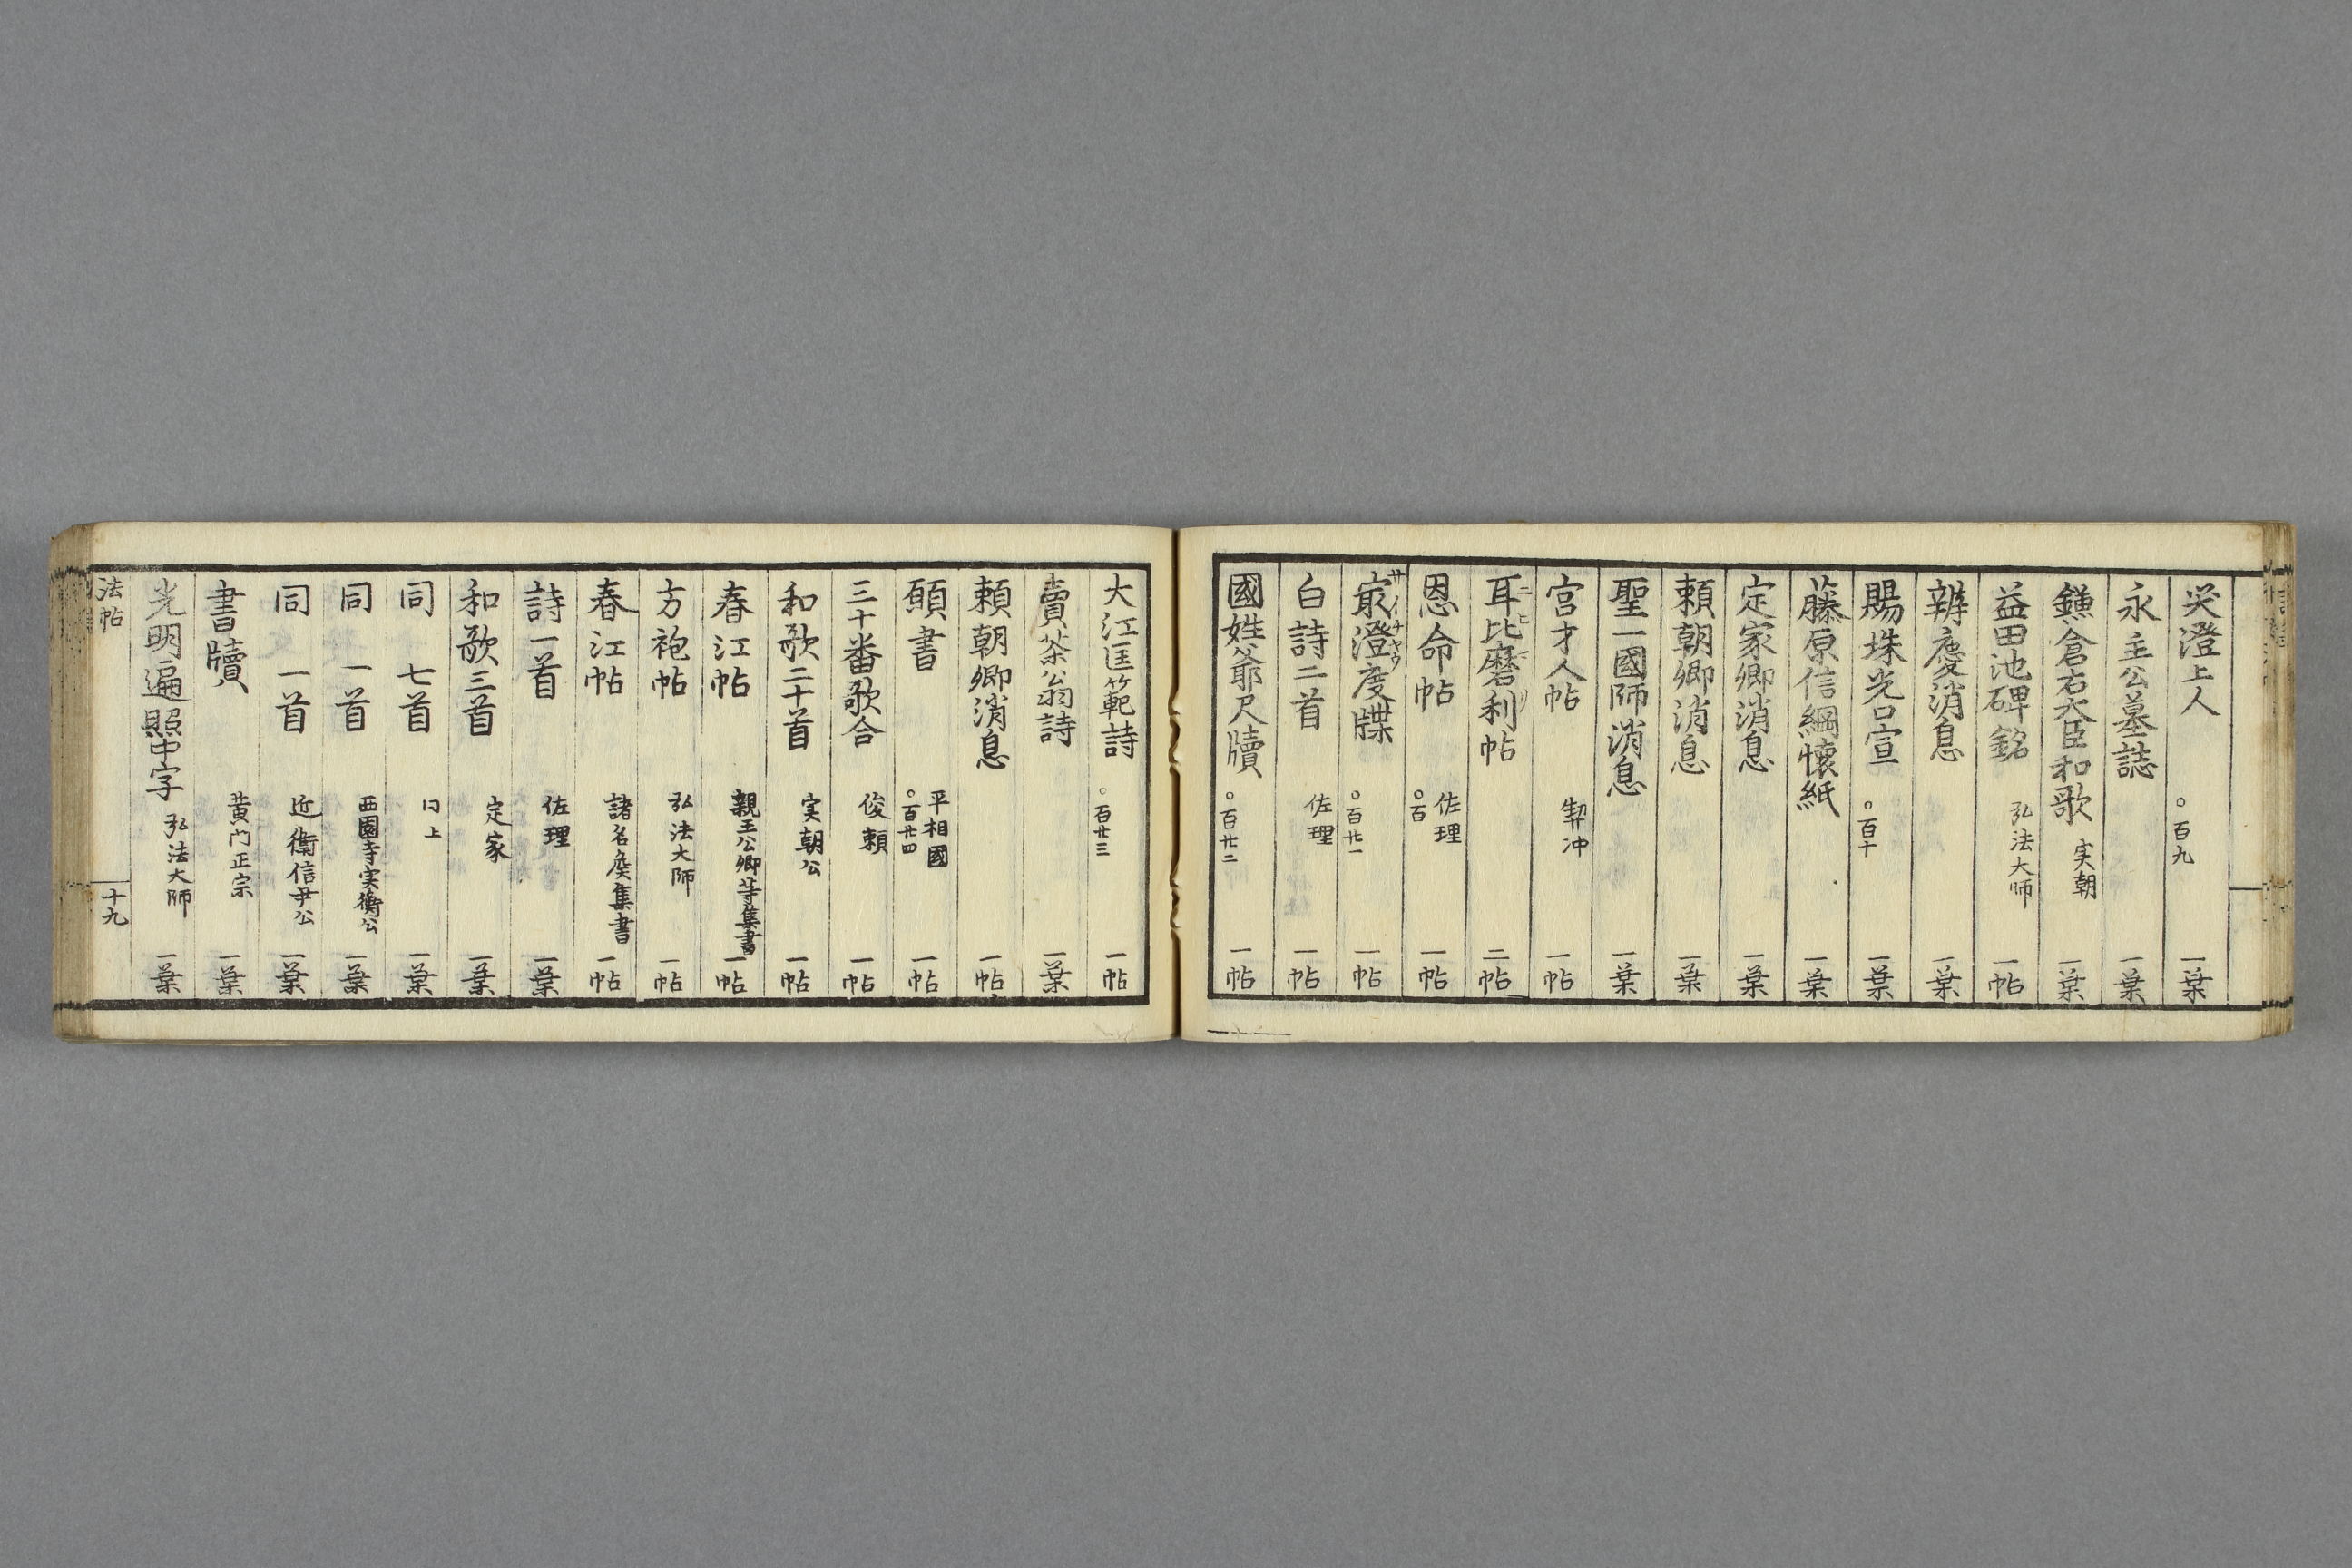 哭澄上人 ○百九 一葉
永主公墓誌 一葉
鎌倉右大臣和歌 実朝 一葉
益田池碑銘 弘法大师 一帖
辨慶消息 一葉
賜珠光口宣 ○百十 一葉
藤原信綱懐紙 一葉
定家卿消息 一葉
頼朝卿消息 一葉
聖一國師消息 一葉
宮才人帖 契冲 一帖
耳比磨利帖 二帖
恩命帖 佐理 ○百 一帖
最澄度牒 サイチヤウ ○百廿一 一帖
白詩二首 佐理 一帖
國姓爺尺牘 ○百廿二 一帖
大江匡範詩 ○百廿三 一帖
賣茶翁詩 一葉
頼朝卿消息 一帖
願書 平相國 ○百廿四 一帖
三十番歌合 俊頼 一帖
和歌二十首 実朝公 一帖
春江帖 親王公卿等集書 一帖
方袍帖 弘法大师 一帖
春江帖 諸名矦集書 一帖
詩一首 佐理 一葉
和歌三首 定家 一葉
同 七首 同上 一葉
同 一首 西園寺実衡公 一葉
同 一首 近衛信尹公 一葉
書牘 黄门正宗 一葉
光明遍照中字 弘法大师 一葉
法帖 十九